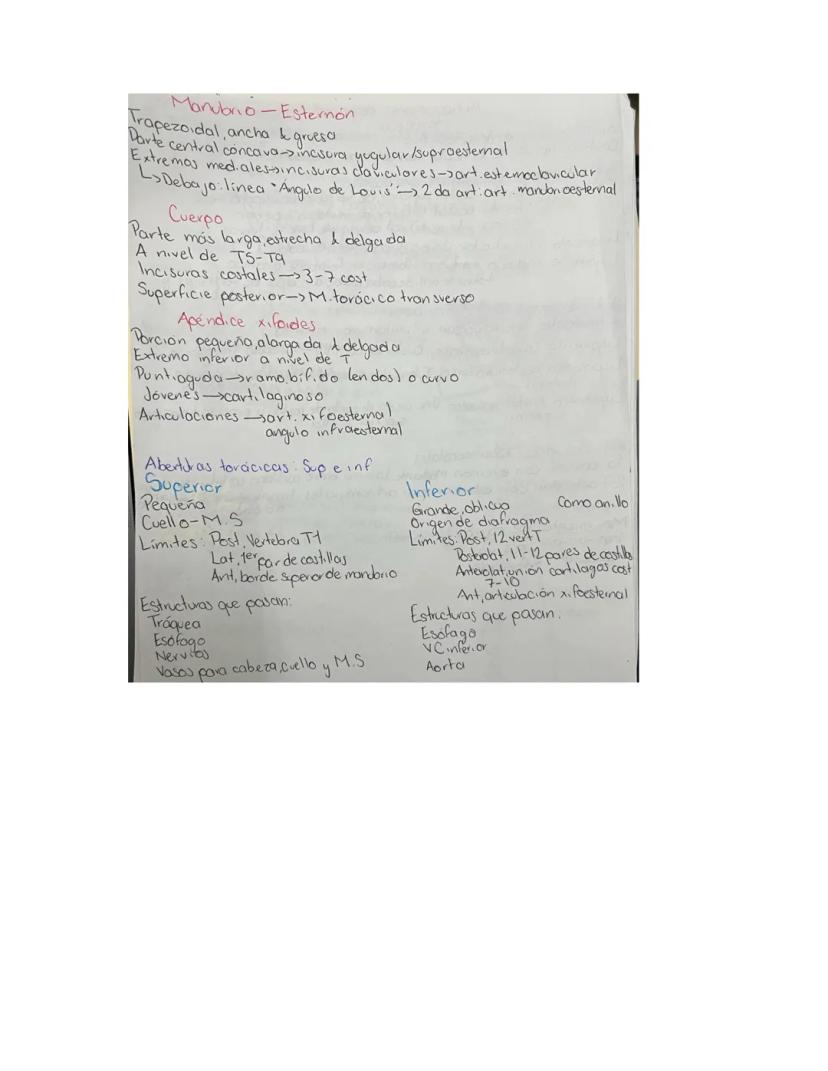 Manubrio — Esternón
Trapezoidal, ancha & gruesa
Parte central cóncava → incisura yugular/supraesternal
Extremos mediales → incisuras claviculares → art. esternoclavicular
↳ Debajo: línea "Ángulo de Louis" → 2da art: art. manubrioesternal
Cuerpo
Parte más larga, estrecha & delgada
A nivel de T5-T9
Incisuras costales → 3-7 cost
Superficie posterior → M. torácico transverso
Apéndice xifoides
Porción pequeña, alargada & delgada
Extremo inferior a nivel de T
Puntiaguda → ramo bifido (en dos) o curvo
Jóvenes → cartilaginoso
Articulaciones → art. xifoesternal
angulo infraesternal
Aberturas torácicas: Sup e inf
Superior
Pequeña
Cuello-M.S
Límites: Post, Vertebra T1
Lat, 1er par de costillas
Ant, borde superor de manubrio
Estructuras que pasan:
Tráquea
Esófago
Nervios
Vasos para cabeza, cuello y M.S
Inferior
Grande, oblicua Como anillo
Origen de diafragma
Límites: Post, 12 vert T
Postolat, 11-12 pares de costilla
Anterolat, unión cartilagos cost
7-10
Ant, articulación xifoesternal
Estructuras que pasan:
Esofago
VC inferior
Aorta